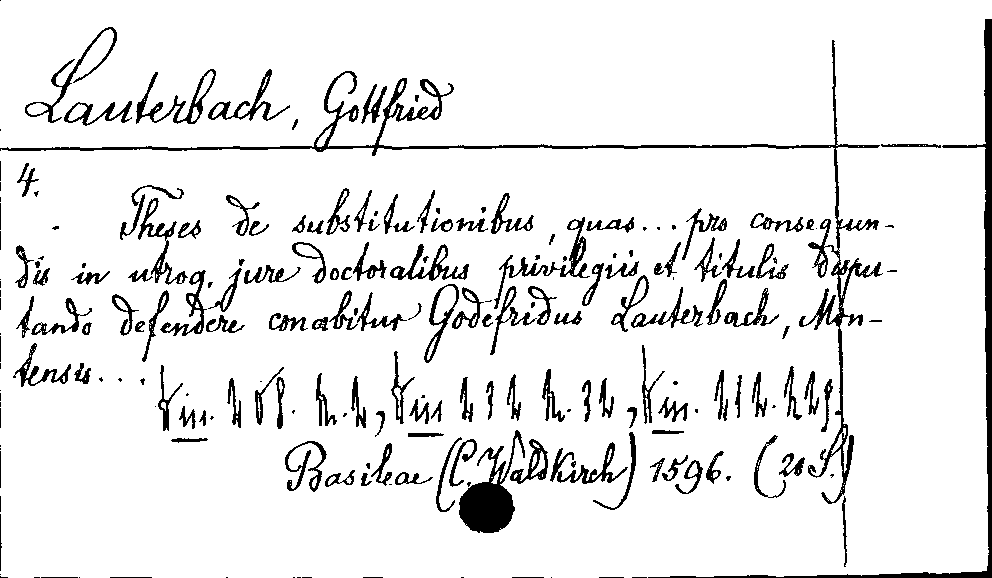 Lauterbach, Gottfried
4.
Theses de substitutionibus, quas... pro consequen-
dis in utroq. jure doctoralibus privilegiis et titulis dispu-
tando defendere conabitur Godefridus Lauterbach, Mon-
tensis...
Basileae (C. Waldkirch) 1596. (20 S.)